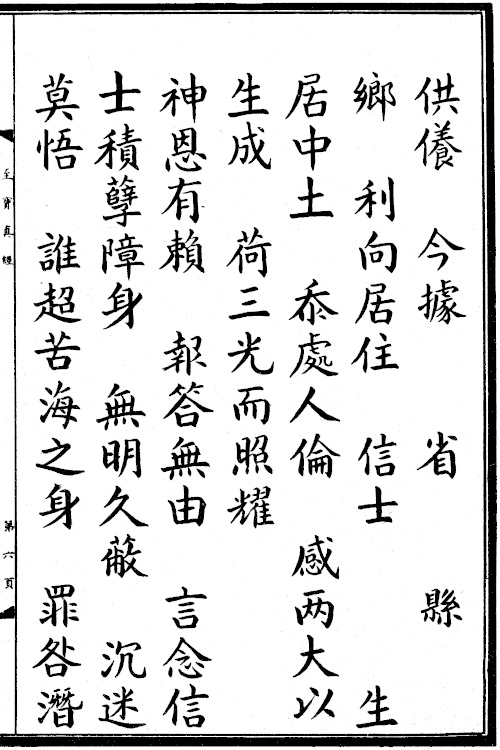 供儀　今據　　省　　縣
鄉　利向居住　信士　　　生
居中土　忝處人倫　感两大以
生成　荷三光而照耀
神恩有賴　報答無由　言念信
士積孽障身　無明久蔽　沉迷
莫悟　誰超苦海之身　罪咎潛
至寶真經
第六頁